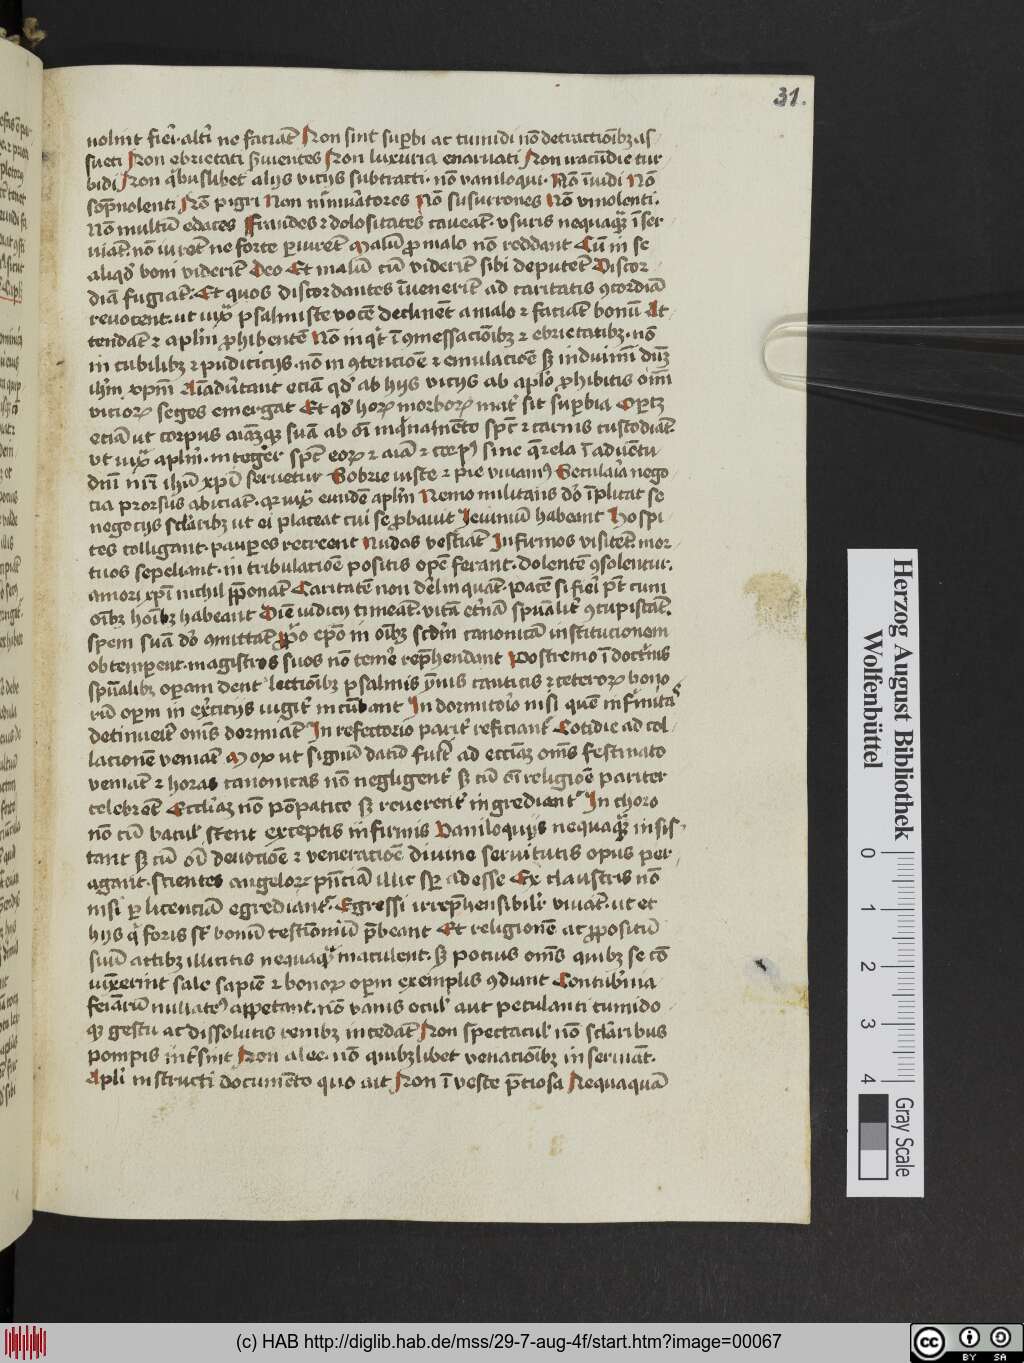 31.
nolunt fieri· alteri ne faciāt Non sint suꝑbi ac tumidi nō detractiōibꝫ as
sueti Non ebrietati ẜuientes Non luxuria enaruati Non iracūdie tur
bidi Non qͥbuslibet alijs vicijs subtracti· nō vaniloqui· Nō īuidi Nō
Nō pigri Non Nō susurrones Nō vinolenti·
Nō multū edaces Fraudes ⁊ dolositates caueāt· vsuris nequaqͣ īser
uiāt· nō iurēt ne forte ꝑiurēt Malū ꝓ malo nō reddant Cū in se
aliqd̓ boni viderīt Deo Et malū cū viderīt sibi deputēt Discor
diā fugiāt· Et quos discordantes īuenerīt ad caritatis ꝯcordiā
reuocent· ut iuxͣ psalmiste vocē declinēt a malo ⁊ faciāt bonū At
tendāt ⁊ aplm̄ ꝓhibentē Nō inqͥt ī ꝯmessaciōibꝫ ⁊ ebrietatibꝫ· nō
in cubilibꝫ ⁊ pudicicijs· nō in ꝯtencioē ⁊ emulacioē sꝫ induimī dn̄m
ihm̄ xpm̄ etiā qd̓ ab hijs vicijs ab aplo ꝓhibitis oīm
vicioꝝ seges emergat Et qd̓ hoꝝ morboꝝ mat̓ sit suꝑbia Oꝑtꝫ
etiā ut corpus aīamqꝫ suā ab oī inqͥnamēto spc̄ ⁊ carnis custodiāt·
vt iuxͣ aplm̄· integer spc̄ eoꝝ ⁊ aīa ⁊ corpꝰ sine qͣrela ī aduētu
dn̄i nr̄i ihū xpī seruetur Sobrie iuste ⁊ pie viuamꝰ Secularia nego
cia prorsus abiciāt· qꝛ iuxͣ eundē aplm̄ Nemo militans dō īplicat se
negocijs sclaribꝫ ut ei placeat cui se ꝓbauit Ieiuniū habeant Hospi
tes colligant· pauꝑes recreent Nudos vestiāt Infirmos visitēt mor
tuos sepeliant· in tribulacioē positis opē ferant· dolentē ꝯsolentur·
amori xpī nichil p̄ponāt Caritatē non delinquāt· Pacē si fieri pt̄ cum
oībꝫ hoībꝫ habeant Diē iudicij timeāt· vitā et̓nā spūalit̓ ꝯcupiscāt·
spem suā dō ꝯmittāt Ꝓpͥo epō in oībꝫ scdm̄ canonicā institucionem
obtemꝑent· magistros suos nō temē rep̄hendant Postremo ī doctͥnis
spūalibꝫ oꝑam dent lectiōibꝫ psalmis ẏnis canticis ⁊ ceteroꝝ bono
rū oꝑm in ex̄citijs iugit̓ incūbant In dormitoīo nisi quē infirmitas
detinuerit om̄s dormiāt In refectorio parit̓ reficiant᷑ Cotidie ad col
lacionē veniāt Mox ut signū datū fuīt ad ecc̄iam om̄s festinato
veniāt ⁊ horas canonicas nō negligent̓ sꝫ cū oī religioē pariter
celebrēt Eccl̄iaꝫ nō pōpatice sꝫ reuerent̓ ingrediant᷑ In choro
nō cū bacul̓ stent exceptis infirmis Vaniloquijs nequaqͣ insis
tant sꝫ cū oī deuocioē ⁊ veneracioē diuine seruitutis opus per
agant· scientes angeloꝝ pn̄ciā illic sꝑ adesse Ex claustris nō
nisi ꝑ licenciā egrediant᷑· Egressi irrep̄hensibilit̓ viuāt· ut et
hijs qͥ foris st̄ bonū testīoniū p̄beant Et religionē ac ꝓpositū
suū actibꝫ illicitis nequaqͣ maculent· sꝫ pocius om̄s quibꝫ se cō
uīxerint sale sapiē ⁊ bonoꝝ oꝑm exemplis ꝯdiant Contub̓nia
feīaꝝ nullatēꝰ appetant· nō vanis ocul̓ aut petulanti tumido
qꝫ gestu ac dissolutis renibꝫ incedāt Non spectacul̓ nō sclaribus
pompis int̓sint Non alee· nō quibꝫlibet venaciōibꝫ inseruiāt·
Apli instructi documēto quo ait Non ī veste p̄ciosa Nequaquā
Herzog August Bibliothek
Wolfenbüttel
0 1 2 3 4
Gray Scale
(c) HAB http://diglib.hab.de/mss/29-7-aug-4f/start.htm?image=00067
cc BY SA